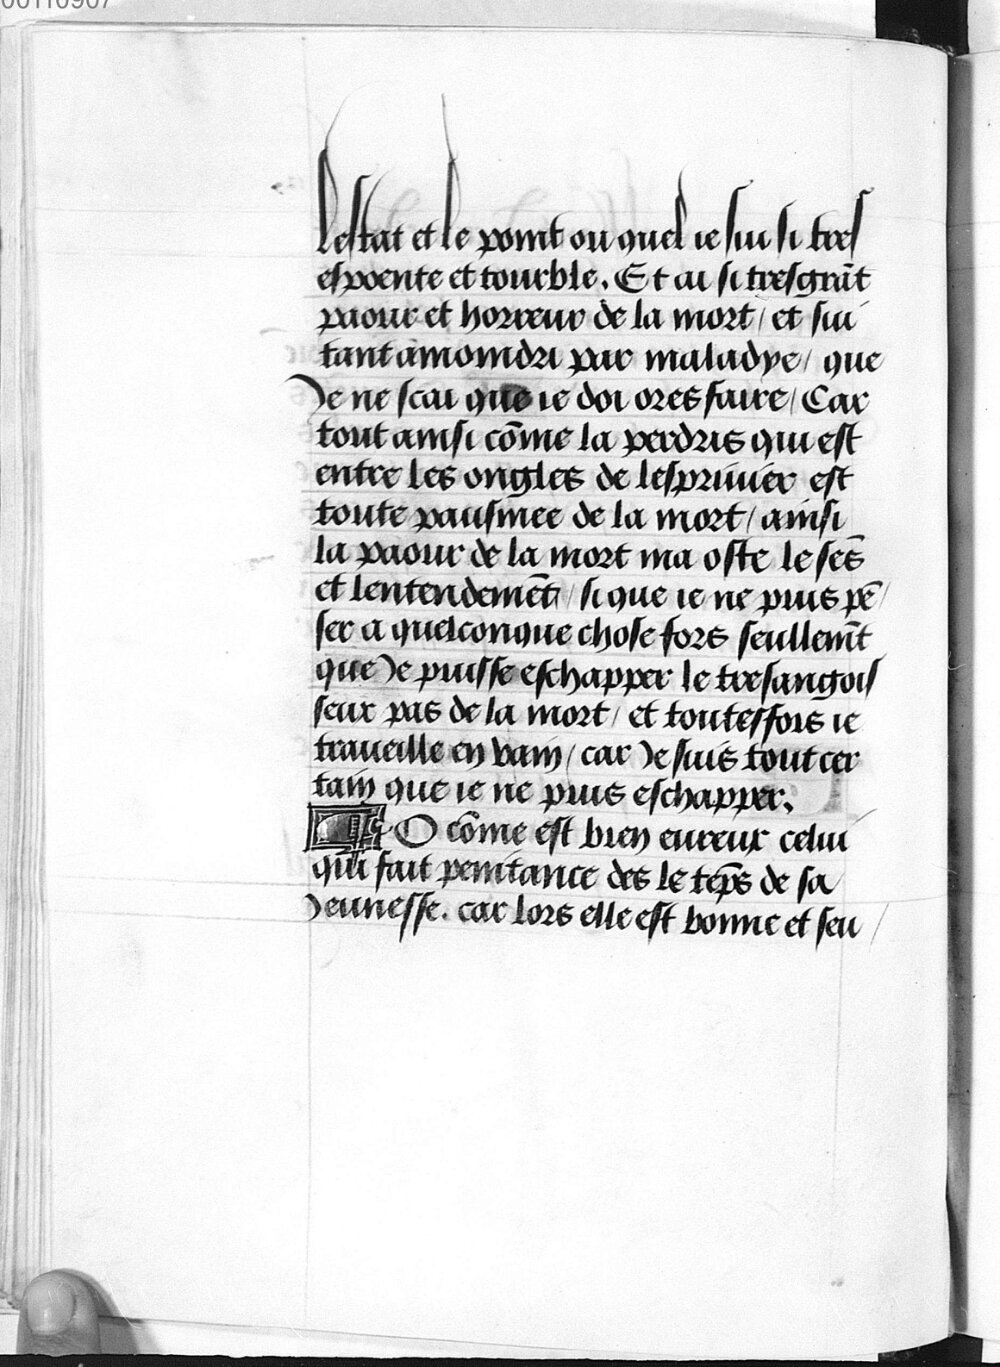 00110907
lestat et le point ou quel ie sui si tres
espoente et tourble. Et ai si tresgrāt
paour et horreur de la mort / et sui
tant amoindri par maladye / que
Je ne scai que ie doi ores faire / Car
tout ainsi cōme la perdris qui est
entre les ongles de lespriuier est
toute pausmee de la mort / ainsi
la paour de la mort ma oste le sēs
et lentendemēt / si que ie ne puis pē /
ser a quelconque chose fors seullemt̄
que Je puisse eschapper le tresangois
seux pas de la mort / et toutesfois ie
traueille en vain / car Je suis tout cer
tain que ie ne puis eschapper.
O cōme est bien eureux celui
qui fait penitance des le tēps de sa
Jeunesse. car lors elle est bonne et seu /